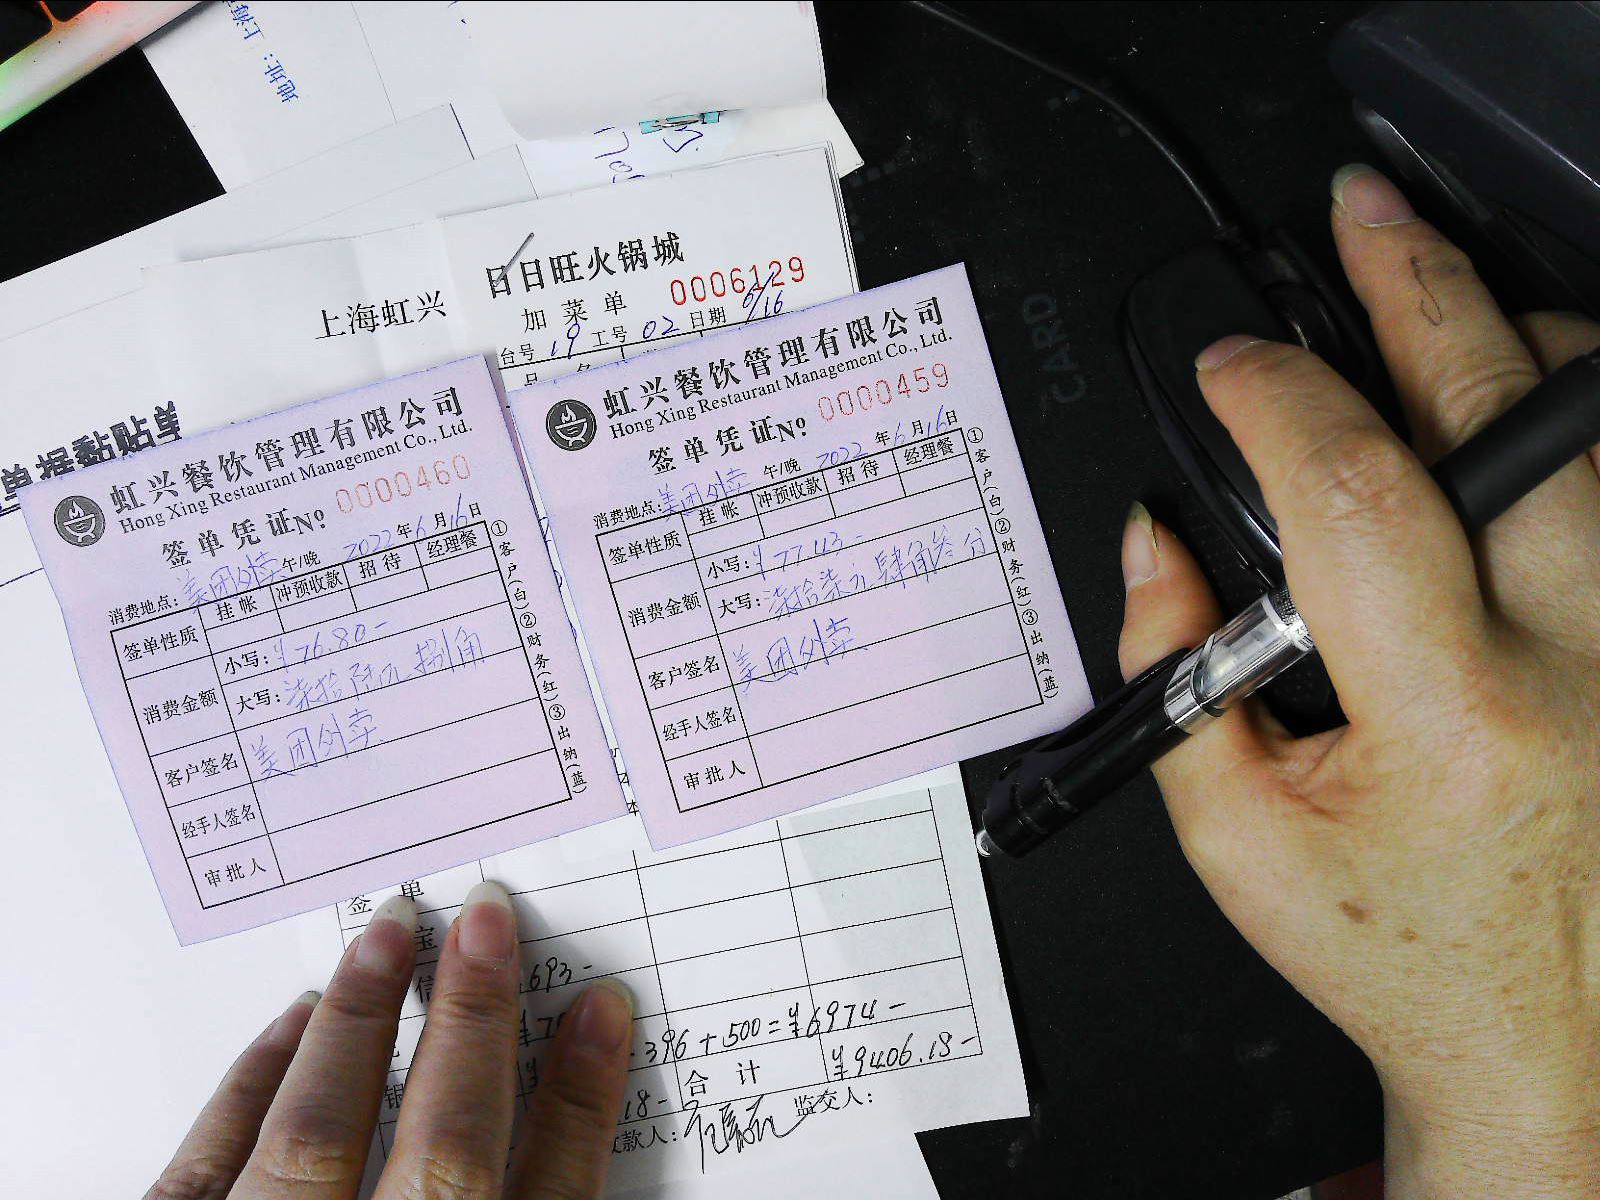 地址：上海
日日旺火锅城
上海虹兴
加菜单
0006129
台号 19 工号 02 日期 6/16
品名
单据黏贴单
虹兴餐饮管理有限公司
Hong Xing Restaurant Management Co., Ltd.
签单凭证№ 0000460
消费地点：美团外卖 午/晚 2022年6月16日
签单性质 挂帐 冲预收款 招待 经理餐
消费金额 小写：¥76.80-
大写：柒拾陆元捌角
客户签名 美团外卖
经手人签名
审批人
①客户（白）②财务（红）③出纳（蓝）
虹兴餐饮管理有限公司
Hong Xing Restaurant Management Co., Ltd.
签单凭证№ 0000459
消费地点：美团外卖 午/晚 2022年6月16日
签单性质 挂帐 冲预收款 招待 经理餐
消费金额 小写：¥77.43-
大写：柒拾柒元肆角叁分
客户签名 美团外卖
经手人签名
审批人
①客户（白）②财务（红）③出纳（蓝）
签单
宝
信 693-
396+500=¥6974-
合计 ¥9406.18-
.18-
收款人： 监交人：
CARD